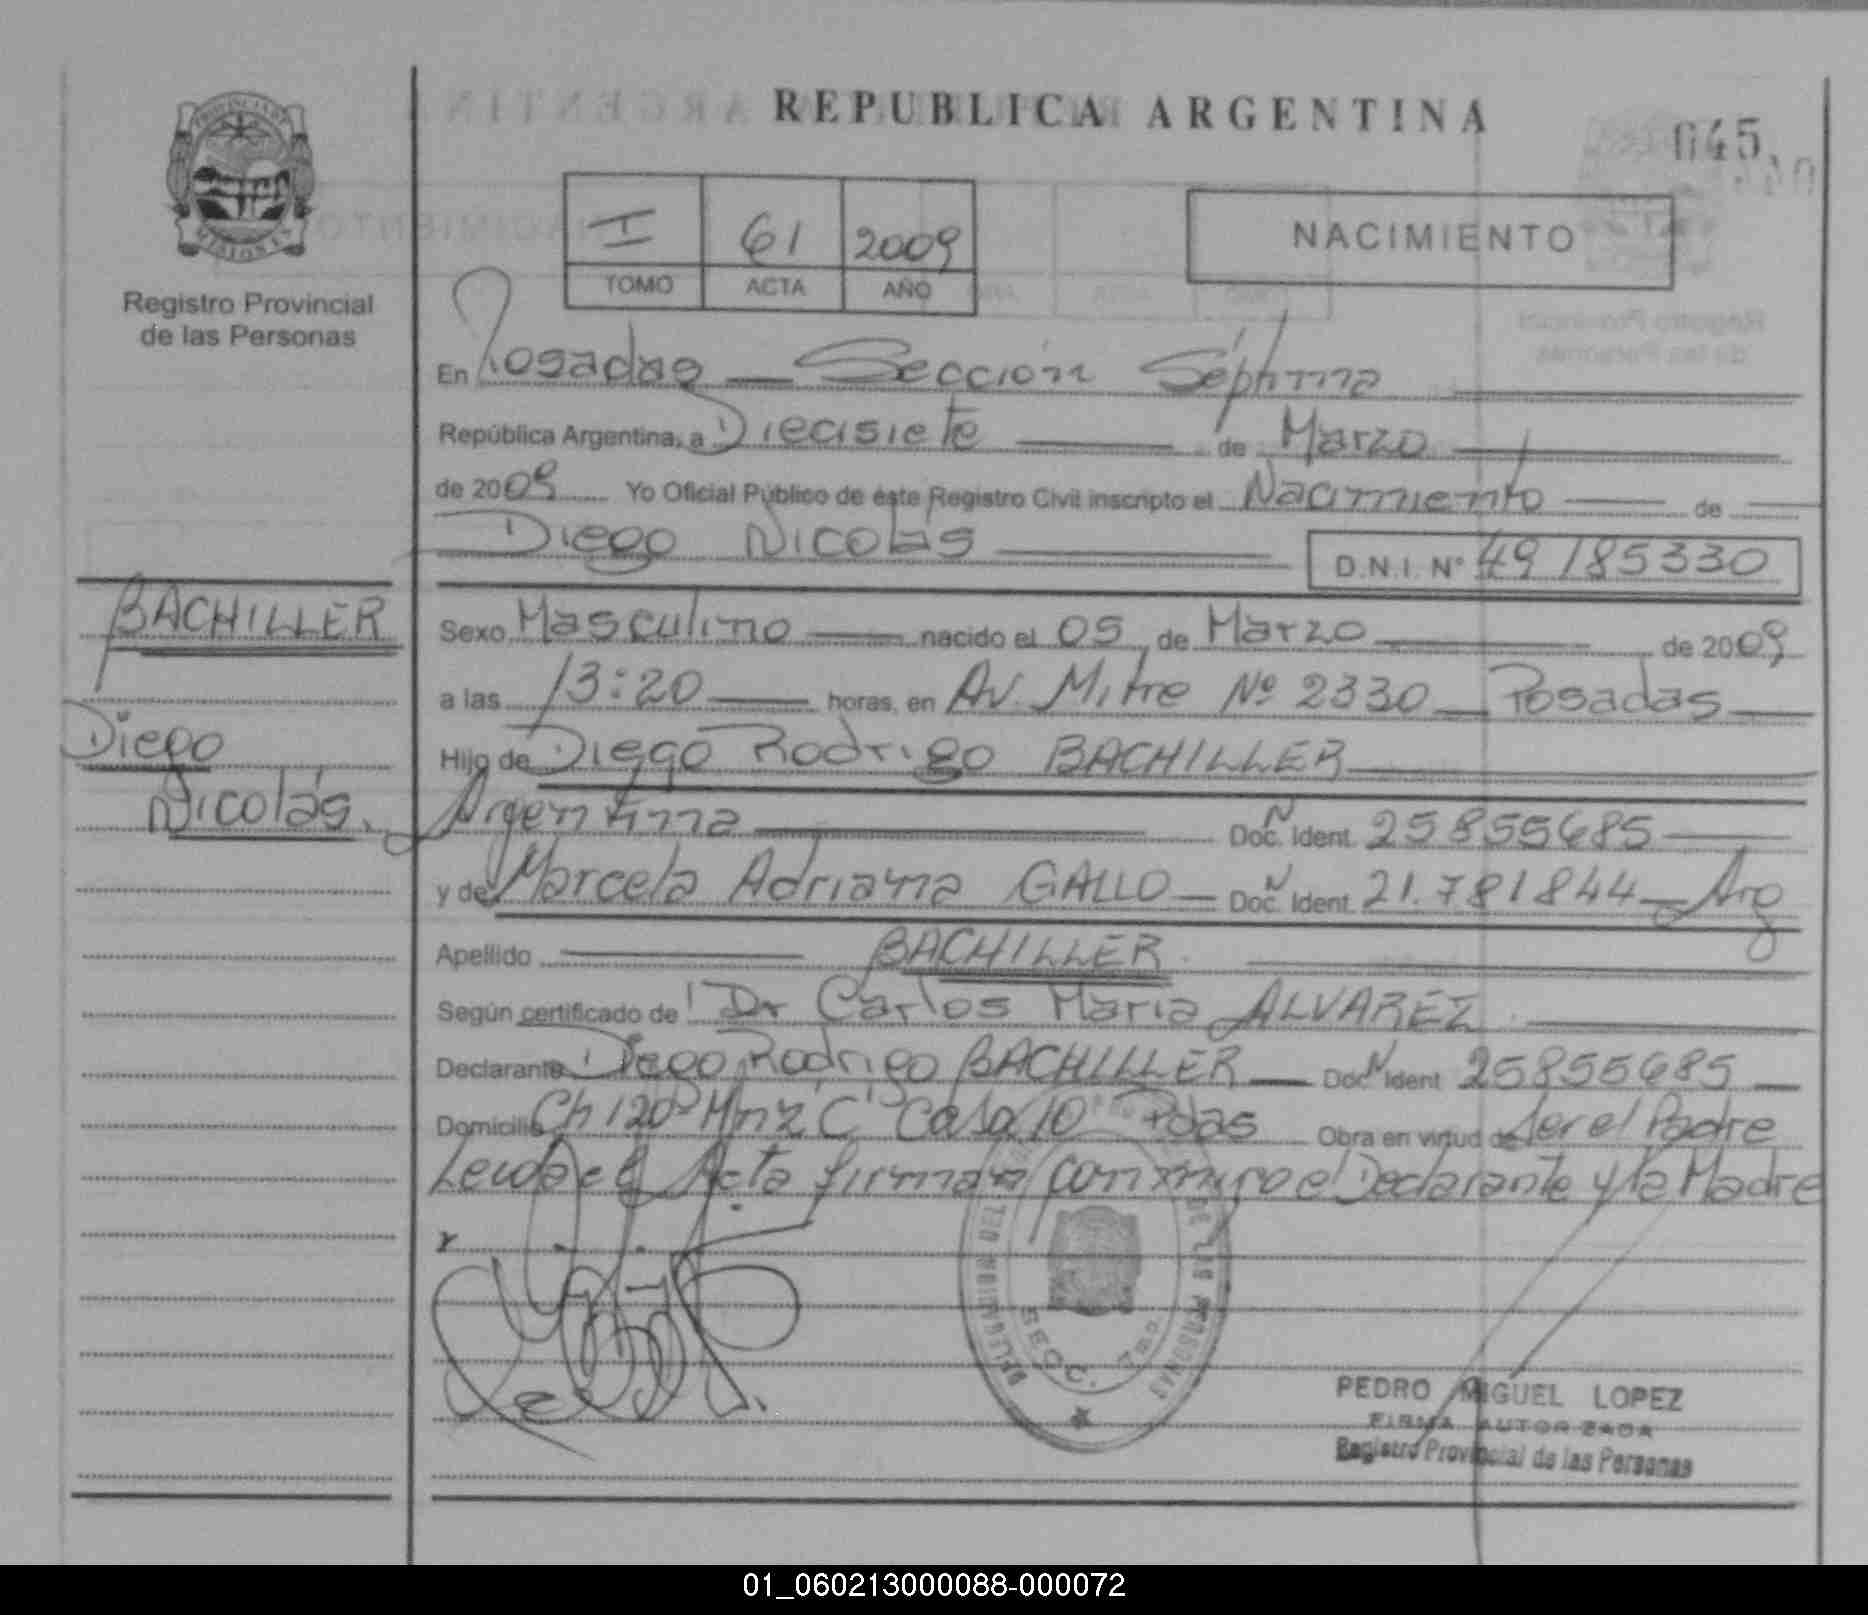 REPUBLICA ARGENTINA
045
PROVINCIA DE MISIONES
Registro Provincial
de las Personas
I 61 2009
TOMO ACTA AÑO
NACIMIENTO
En Posadas — Sección Séptima
República Argentina, a Diecisiete de Marzo
de 2009 Yo Oficial Público de éste Registro Civil inscripto el Nacimiento de
Diego Nicolás D.N.I. Nº 49185330
BACHILLER
Diego
Nicolás.
Sexo Masculino nacido el 05 de Marzo de 2009
a las 13:20 horas, en Av. Mitre Nº 2330 — Posadas
Hijo de Diego Rodrigo BACHILLER
Argentina Doc. Ident. 25855685
y de Marcela Adriana GALLO — Doc. Ident. 21.781844 — Arg
Apellido BACHILLER.
Según certificado de Dr Carlos Maria ALVAREZ
Declarante Diego Rodrigo BACHILLER — Doc. Ident 25855685
Domicilio Ch 120 Mnz C Casa 10 Pdas Obra en virtud de Ser el Padre
Leida el Acta firman conmigo el Declarante y la Madre
DE LAS PERSONAS
SECC. 7ma.
PEDRO MIGUEL LOPEZ
FIRMA AUTORIZADA
Registro Provincial de las Personas
01_060213000088-000072